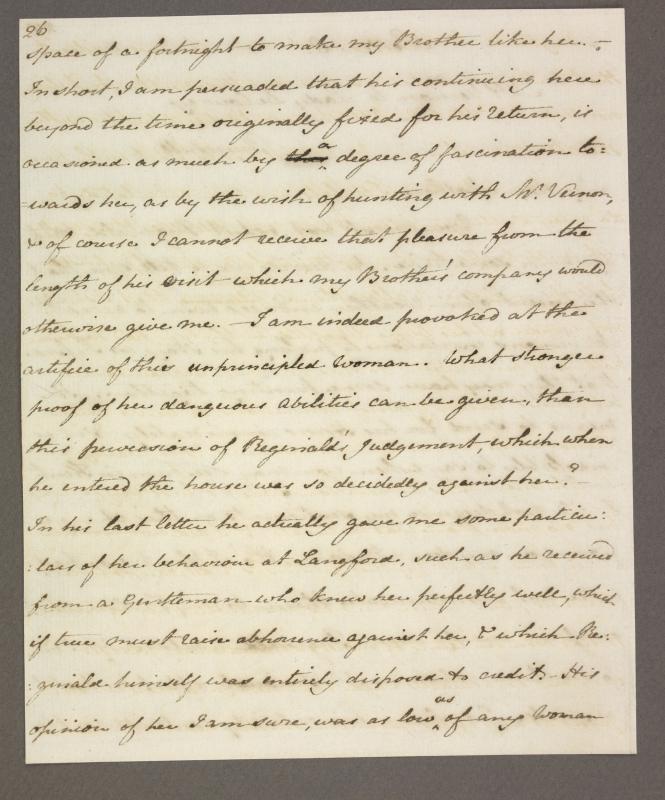 26
space of a fortnight to make my Brother like her. –
In short, I am persuaded that his continuing here
beyond the time originally fixed for his return, is
occasioned as much by a degree of fascination to:
:wards her, as by the wish of hunting with Mr. Vernon,
& of course I cannot receive that pleasure from the
length of his visit which my Brother's company would
otherwise give me. – I am indeed provoked at the
artifice of this unprincipled Woman. What stronger
proof of her dangerous abilities can be given, than
this perversion of Reginald's Judgement, which when
he entered the house was so decidedly against her? –
In his last letter he actually gave me some particu:
:lars of her behaviour at Langford, such as he received
from a Gentleman who knew her perfectly well, which
if true must raise abhorrence against her, & which Re:
:ginald himself was entirely disposed to credit. – His
opinion of her I am sure, was as low as of any Woman